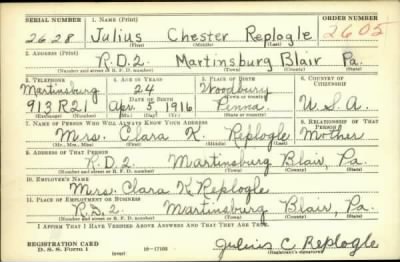 SERIAL NUMBER 1. NAME (Print) ORDER NUMBER
2628 Julius Chester Replogle 2605
(First) (Middle) (Last)
2. ADDRESS (Print)
R.D.2. Martinsburg Blair Pa.
(Number and street or R. F. D. number) (Town) (County) (State)
3. TELEPHONE 4. AGE IN YEARS 5. PLACE OF BIRTH 6. COUNTRY OF CITIZENSHIP
Martinsburg 24 Woodbury
DATE OF BIRTH (Town or county)
913 R21 Apr. 5, 1916 Penna. U.S.A.
(Exchange) (Number) (Mo.) (Day) (Yr.) (State or country)
7. NAME OF PERSON WHO WILL ALWAYS KNOW YOUR ADDRESS 8. RELATIONSHIP OF THAT PERSON
Mrs. Clara K. Replogle Mother
(Mr., Mrs., Miss) (First) (Middle) (Last)
9. ADDRESS OF THAT PERSON
R.D.2. Martinsburg Blair, Pa.
(Number and street or R. F. D. number) (Town) (County) (State)
10. EMPLOYER'S NAME
Mrs. Clara K Replogle
11. PLACE OF EMPLOYMENT OR BUSINESS
R.D.2. Martinsburg Blair, Pa.
(Number and street or R. F. D. number) (Town) (County) (State)
I AFFIRM THAT I HAVE VERIFIED ABOVE ANSWERS AND THAT THEY ARE TRUE.
REGISTRATION CARD Julius C. Replogle
D. S. S. Form 1 (over) 16-17105 (Registrant's signature)